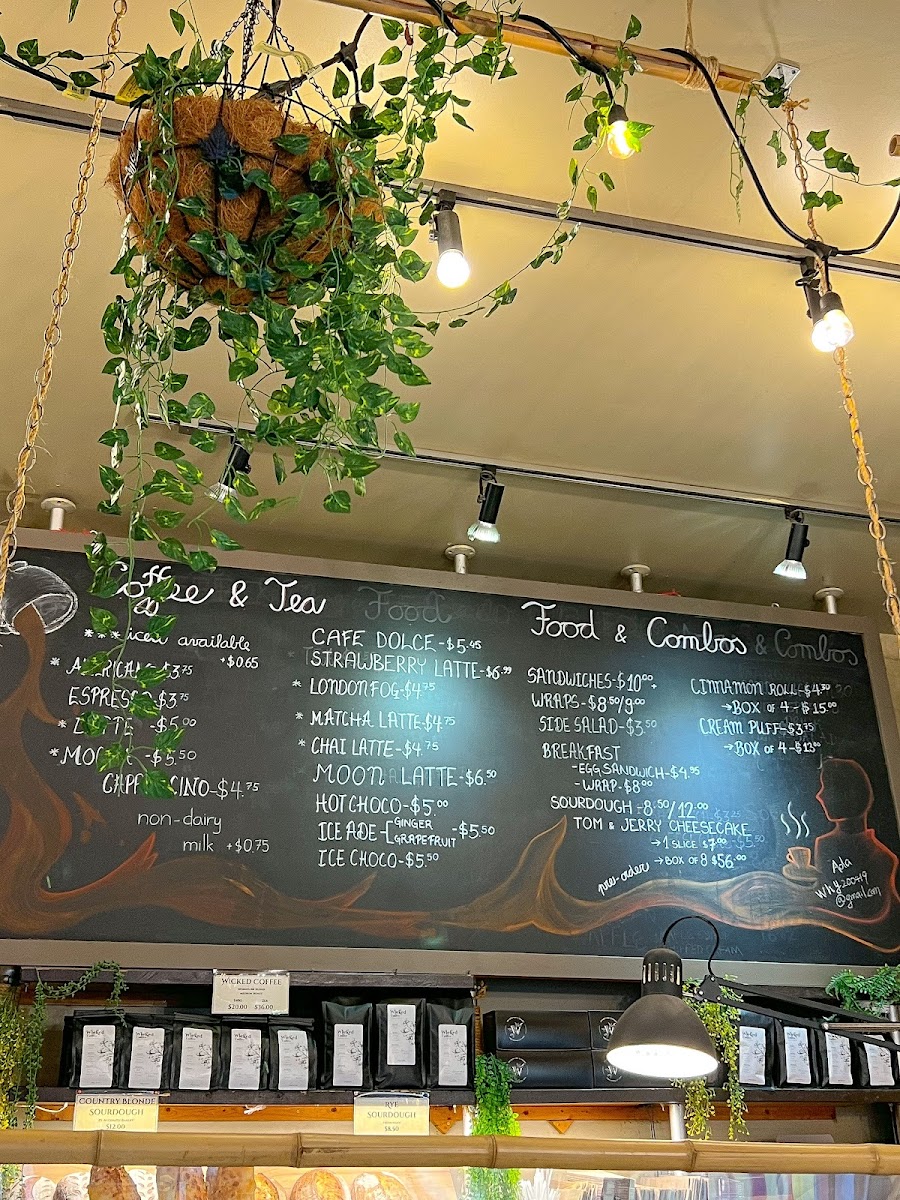 Coffee & Tea
***iced available
+$0.65
* AMERICANO $3.75
ESPRESSO $3.75
* LATTE - $5.00
* MOCHA - $5.50
CAPPUCCINO - $4.75
non-dairy
milk +$0.75
Food
CAFE DOLCE - $5.45
STRAWBERRY LATTE - $6.99
* LONDON FOG - $4.75
* MATCHA LATTE - $4.75
* CHAI LATTE - $4.75
MOON LATTE - $6.50
HOT CHOCO - $5.00
ICE ADE - [GINGER
GRAPEFRUIT - $5.50
ICE CHOCO - $5.50
Food & Combos & Combos
SANDWICHES - $10.00+
WRAPS - $8.50/9.00
SIDE SALAD - $3.50
BREAKFAST
- EGG SANDWICH - $4.95
- WRAP - $8.00
SOURDOUGH - 8.50/12.00
TOM & JERRY CHEESECAKE
→ 1 SLICE $7.00 - $5.50
pre-order → BOX OF 8 $56.00
CINNAMON ROLL - $4.30
→ BOX OF 4 - $15.00
CREAM PUFF - $3.75
→ BOX OF 4 - $13.00
Ada
why200419
@gmail.com
WICKED COFFEE
$20.00 $36.00
Wicked
Wicked
Wicked
Wicked
COUNTRY BLONDE
SOURDOUGH
$12.00
RYE
SOURDOUGH
$8.50